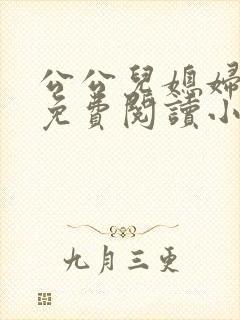 公公兒媳婦
免費閱讀小
九月三更